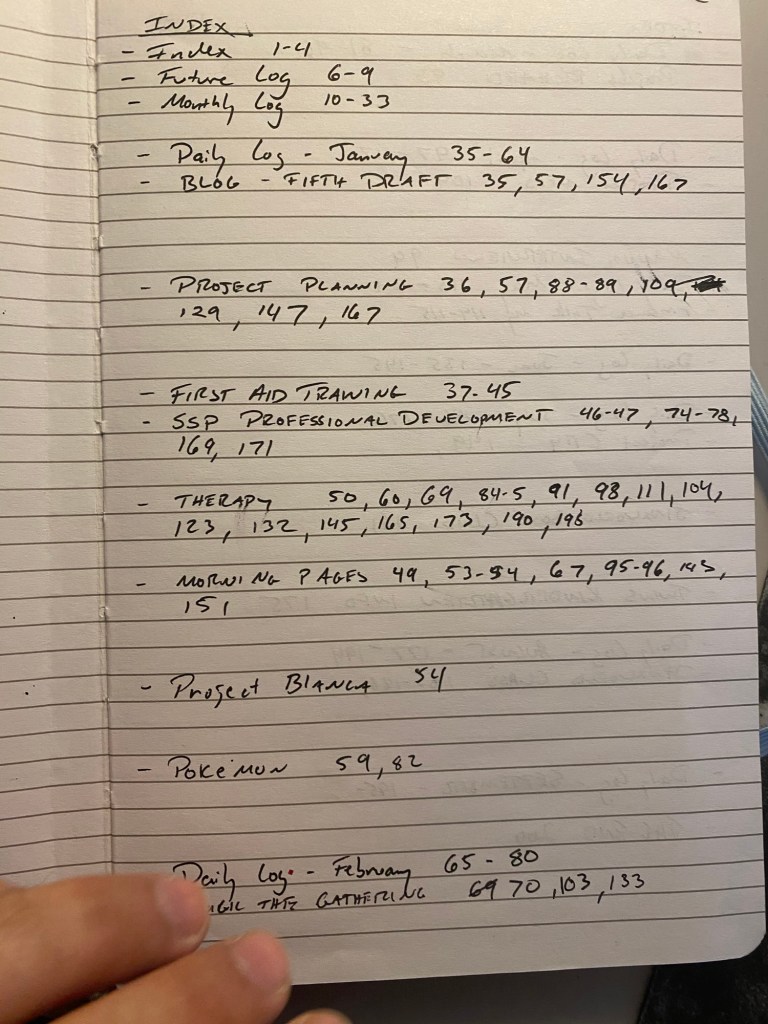 INDEX
- Index 1-4
- Future Log 6-9
- Monthly Log 10-33
- Daily Log - January 35-64
- BLOG - FIFTH DRAFT 35, 57, 154, 167
- PROJECT PLANNING 36, 57, 88-89, 109,
129, 147, 167
- FIRST AID TRAINING 37-45
- SSP PROFESSIONAL DEVELOPMENT 46-47, 74-78,
169, 171
- THERAPY 50, 60, 69, 84-5, 91, 98, 111, 104,
123, 132, 145, 165, 173, 190, 196
- MORNING PAGES 49, 53-54, 67, 95-96,
151
- Project BIANCA 54
- POKéMON 59, 82
Daily Log - February 65-80
THE GATHERING 69 70, 103, 133